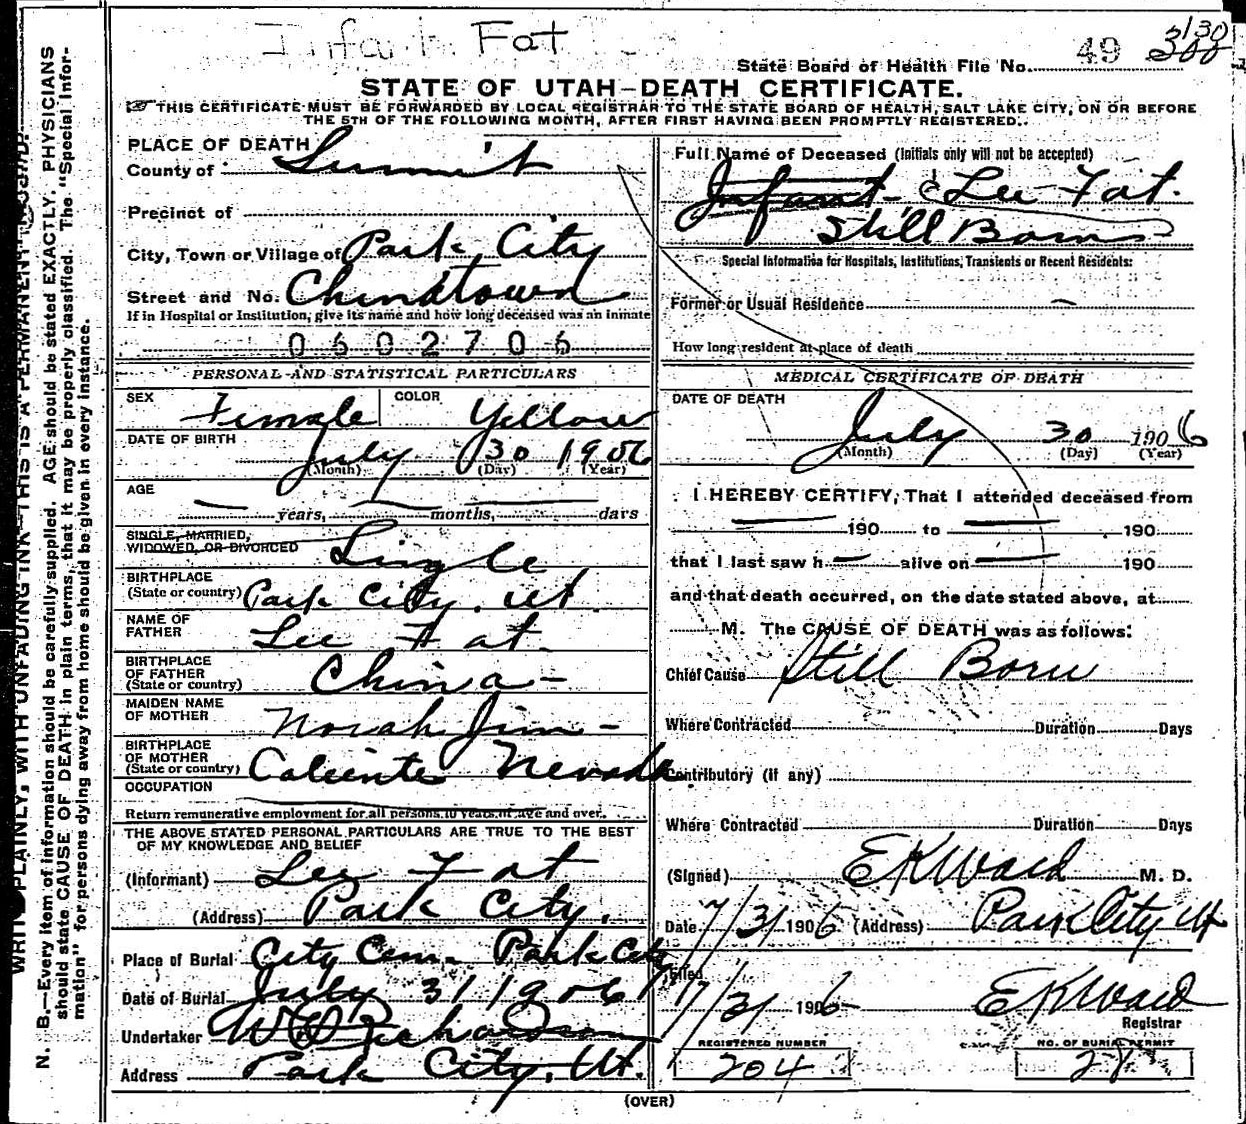 Infant Fat
State Board of Health File No. 49 3130 300
STATE OF UTAH-DEATH CERTIFICATE.
THIS CERTIFICATE MUST BE FORWARDED BY LOCAL REGISTRAR TO THE STATE BOARD OF HEALTH, SALT LAKE CITY, ON OR BEFORE
THE 5TH OF THE FOLLOWING MONTH, AFTER FIRST HAVING BEEN PROMPTLY REGISTERED.
PLACE OF DEATH
County of Summit
Precinct of
City, Town or Village of Park City
Street and No. Chinatown
If in Hospital or Institution, give its name and how long deceased was an inmate
0602706
PERSONAL AND STATISTICAL PARTICULARS
SEX Female COLOR Yellow
DATE OF BIRTH
July 30 1906
(Month) (Day) (Year)
AGE
years, months, days
SINGLE, MARRIED,
WIDOWED, OR DIVORCED Single
BIRTHPLACE
(State or country) Park City. Ut
NAME OF
FATHER Lee Fat.
BIRTHPLACE
OF FATHER
(State or country) China-
MAIDEN NAME
OF MOTHER Norah Jim-
BIRTHPLACE
OF MOTHER
(State or country) Caliente Nevada
OCCUPATION
Return remunerative employment for all persons 10 years of age and over.
THE ABOVE STATED PERSONAL PARTICULARS ARE TRUE TO THE BEST
OF MY KNOWLEDGE AND BELIEF
(Informant) Lee Fat
(Address) Park City.
Place of Burial City Cem. Park City
Date of Burial July 31 1906
Undertaker W Richardson
Address Park City, Ut.
Full Name of Deceased (Initials only will not be accepted)
Infant of Lee Fat.
Still Born
Special Information for Hospitals, Institutions, Transients or Recent Residents:
Former or Usual Residence
How long resident at place of death
MEDICAL CERTIFICATE OF DEATH
DATE OF DEATH
July 30 1906
(Month) (Day) (Year)
I HEREBY CERTIFY, That I attended deceased from
190 to 190
that I last saw h alive on 190
and that death occurred, on the date stated above, at
M. The CAUSE OF DEATH was as follows:
Chief Cause Still Born
Where Contracted Duration Days
Contributory (if any)
Where Contracted Duration Days
(Signed) EKWard M. D.
Date 7/31 1906 (Address) Park City Ut
Filed 7/31 1906 EKWard
Registrar
REGISTERED NUMBER NO. OF BURIAL PERMIT
204
(OVER)
N. B.—Every item of information should be carefully supplied. AGE should be stated EXACTLY. PHYSICIANS
should state CAUSE OF DEATH in plain terms, that it may be properly classified. The "Special Infor-
mation" for persons dying away from home should be given in every instance.
WRITE PLAINLY, WITH UNFADING INK—THIS IS A PERMANENT RECORD.